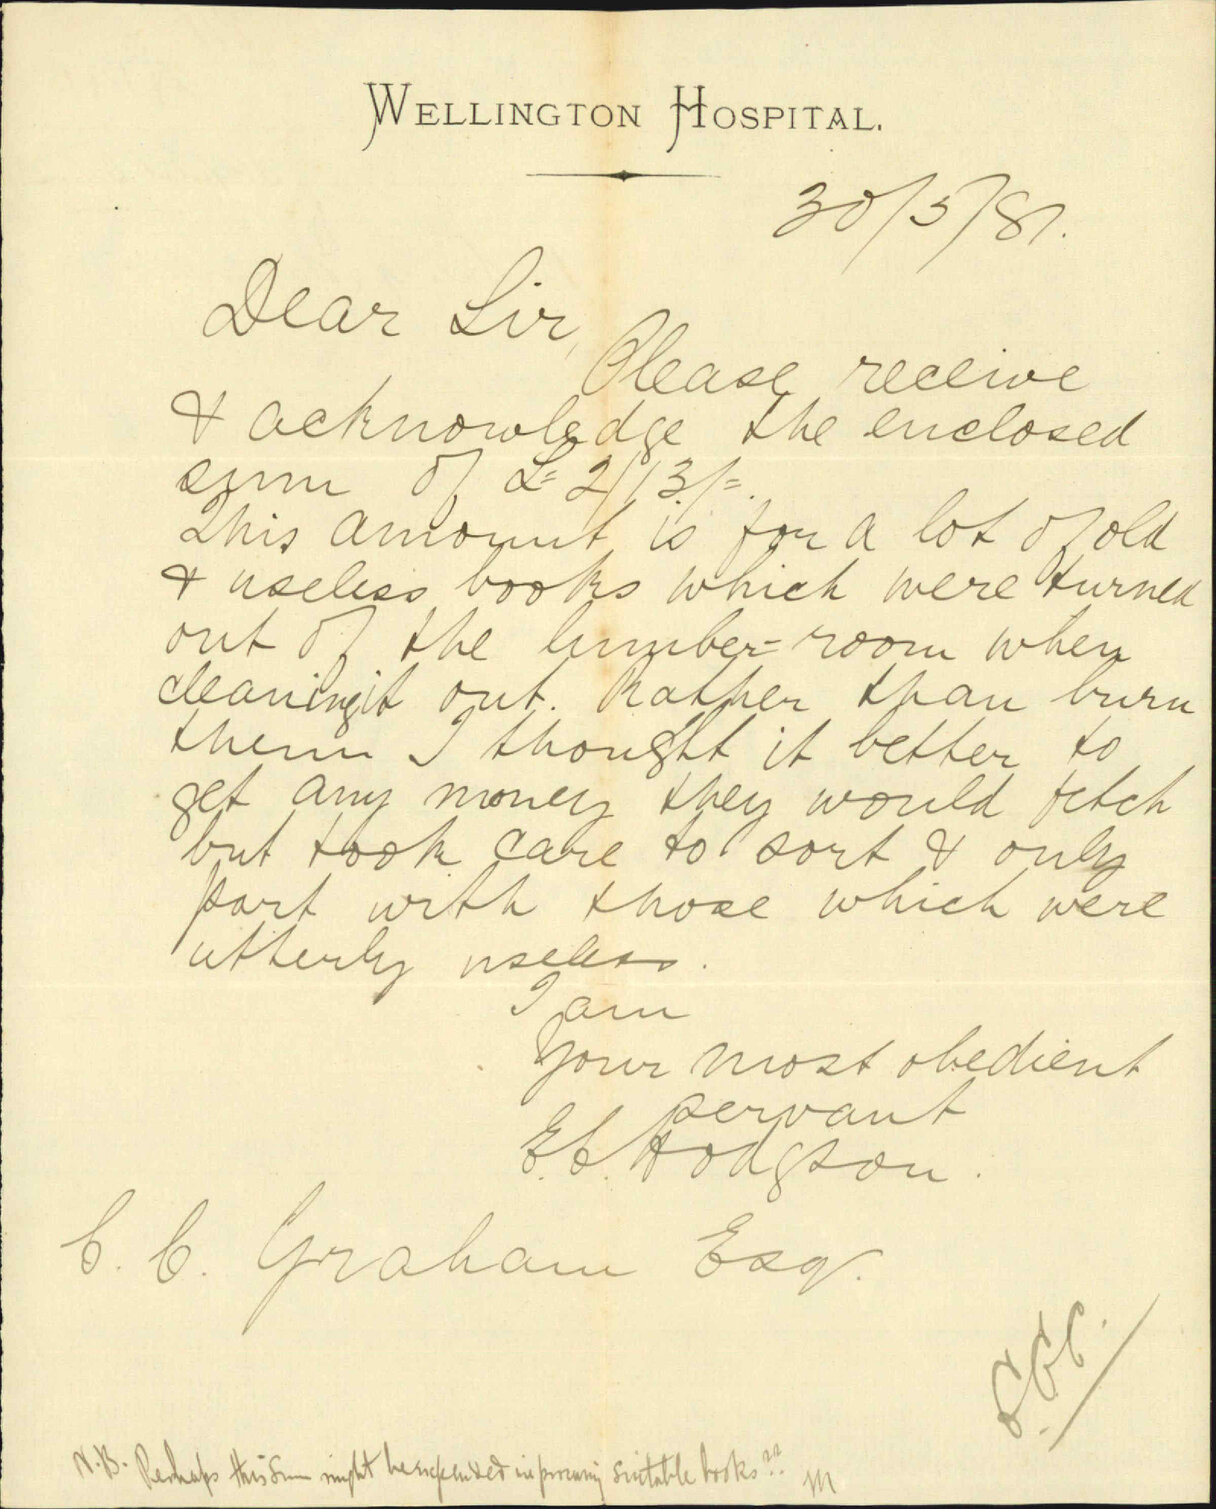 WELLINGTON HOSPITAL.
30/5/87.
Dear Sir,
Please receive
& acknowledge the enclosed
sum of £= 2/13/=.
This amount is for a lot of old
& useless books which were turned
out of the lumber=room when
cleaning it out. Rather than burn
them I thought it better to
get any money they would fetch
but took care to sort & only
part with those which were
utterly useless.
I am
Your most obedient
servant
E.C. Hodgson.
C. C. Graham Esq.
N.B. Perhaps this Sum might be expended in procuring suitable books??